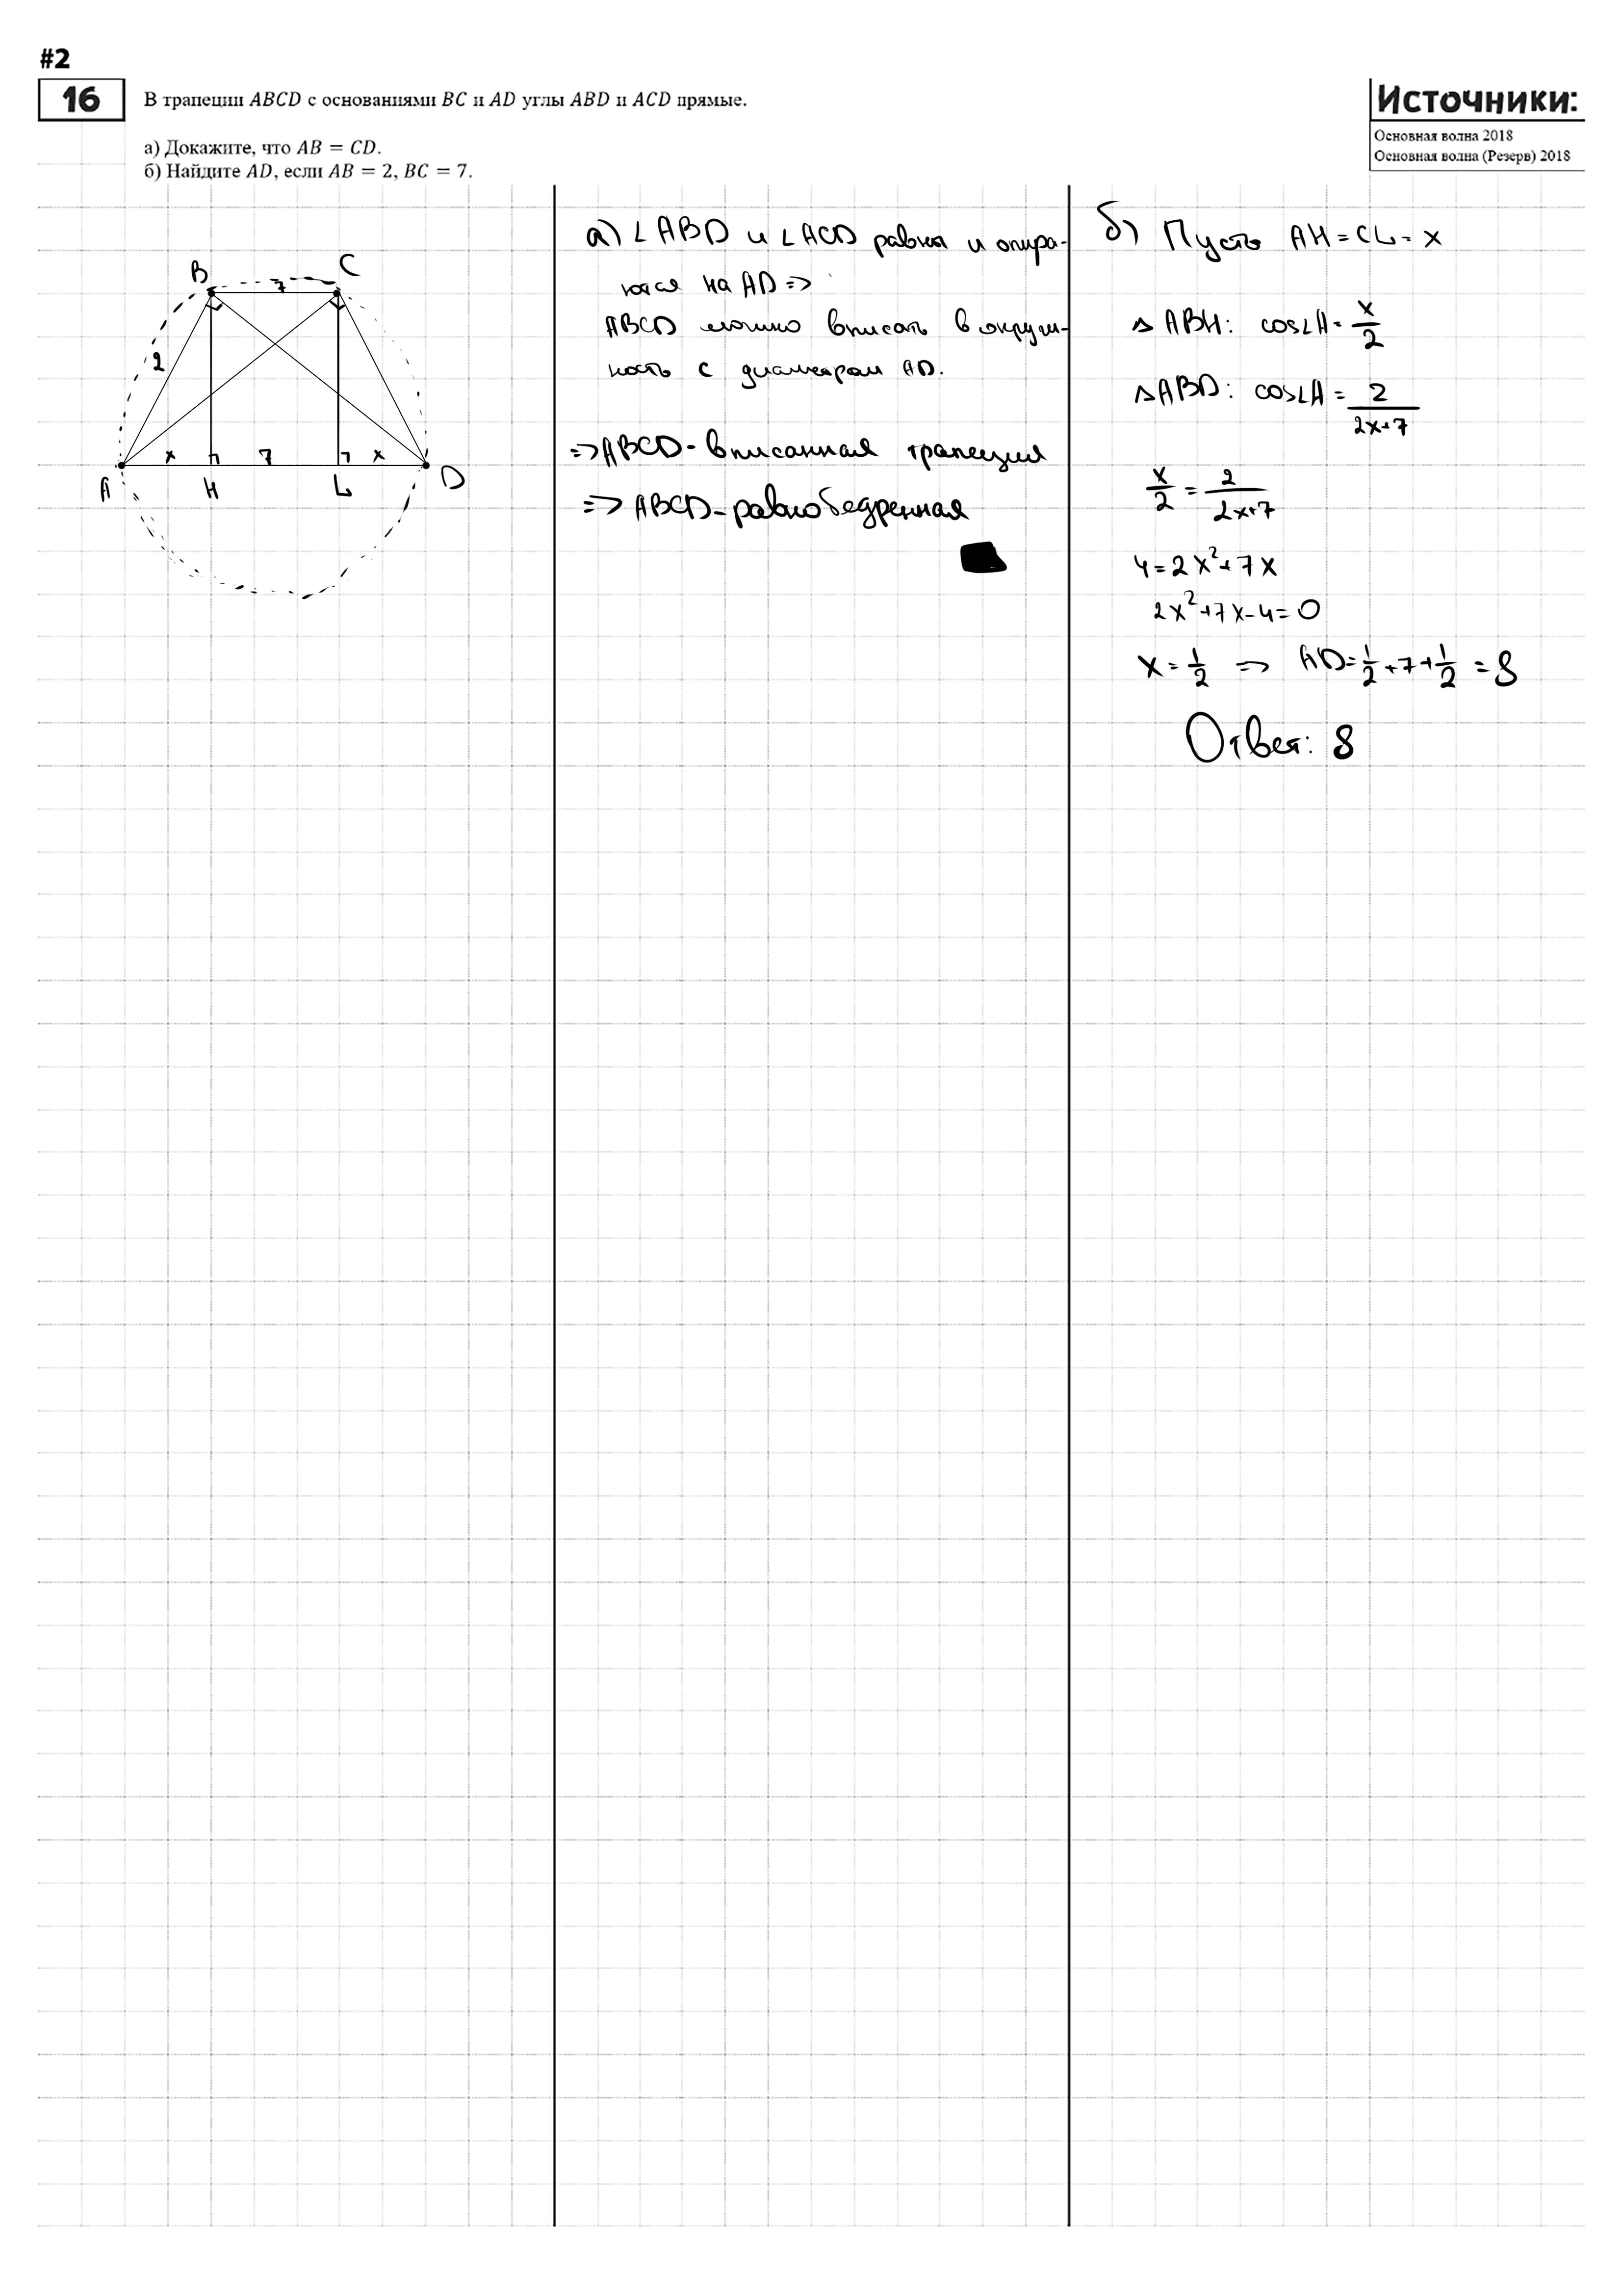 #2
16
В трапеции ABCD с основаниями BC и AD углы ABD и ACD прямые.
а) Докажите, что AB = CD.
б) Найдите AD, если AB = 2, BC = 7.
Источники:
Основная волна 2018
Основная волна (Резерв) 2018
B 7 C
2
x 7 x
A H L D
а) ∠ABD и ∠ACD равны и опира-
ются на AD =>
ABCD можно вписать в окруж-
ность с диаметром AD.
=> ABCD - вписанная трапеция
=> ABCD - равнобедренная
б) Пусть AH = CL = x
△ABH: cos∠A = x/2
△ABD: cos∠A = 2/(2x+7)
x/2 = 2/(2x+7)
4 = 2x² + 7x
2x² + 7x - 4 = 0
x = 1/2 => AD = 1/2 + 7 + 1/2 = 8
Ответ: 8